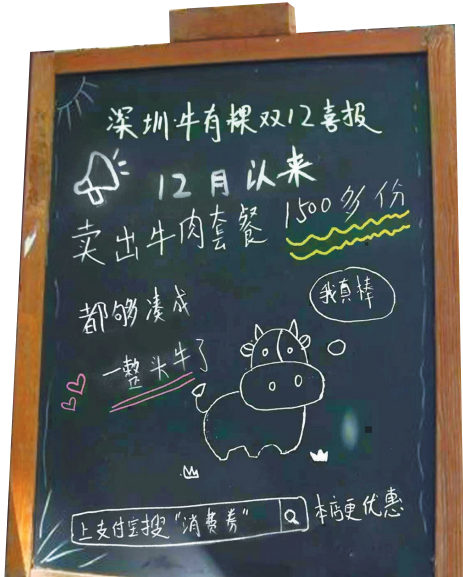 深圳牛有棵双12喜报
12月以来
卖出牛肉套餐1500多份
都够凑成
我真棒
一整头牛了
上支付宝搜"消费券"
本店更优惠